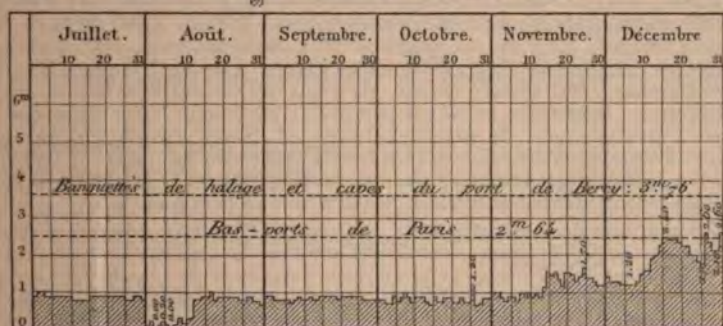 Juillet. Août. Septembre. Octobre. Novembre. Décembre
10 20 31 10 20 31 10 20 30 10 20 31 10 20 30 10 20 31
6m
5
4
Banquettes de halage et capes du port de Bercy: 3m 76
3
Bas-ports de Paris 2m 64
2
1.70
1.20
1.20
1
0